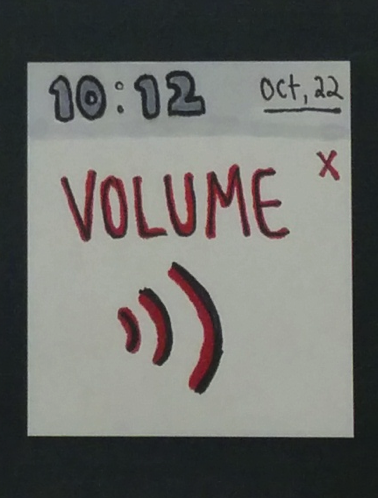 10:12 Oct, 22
x
VOLUME